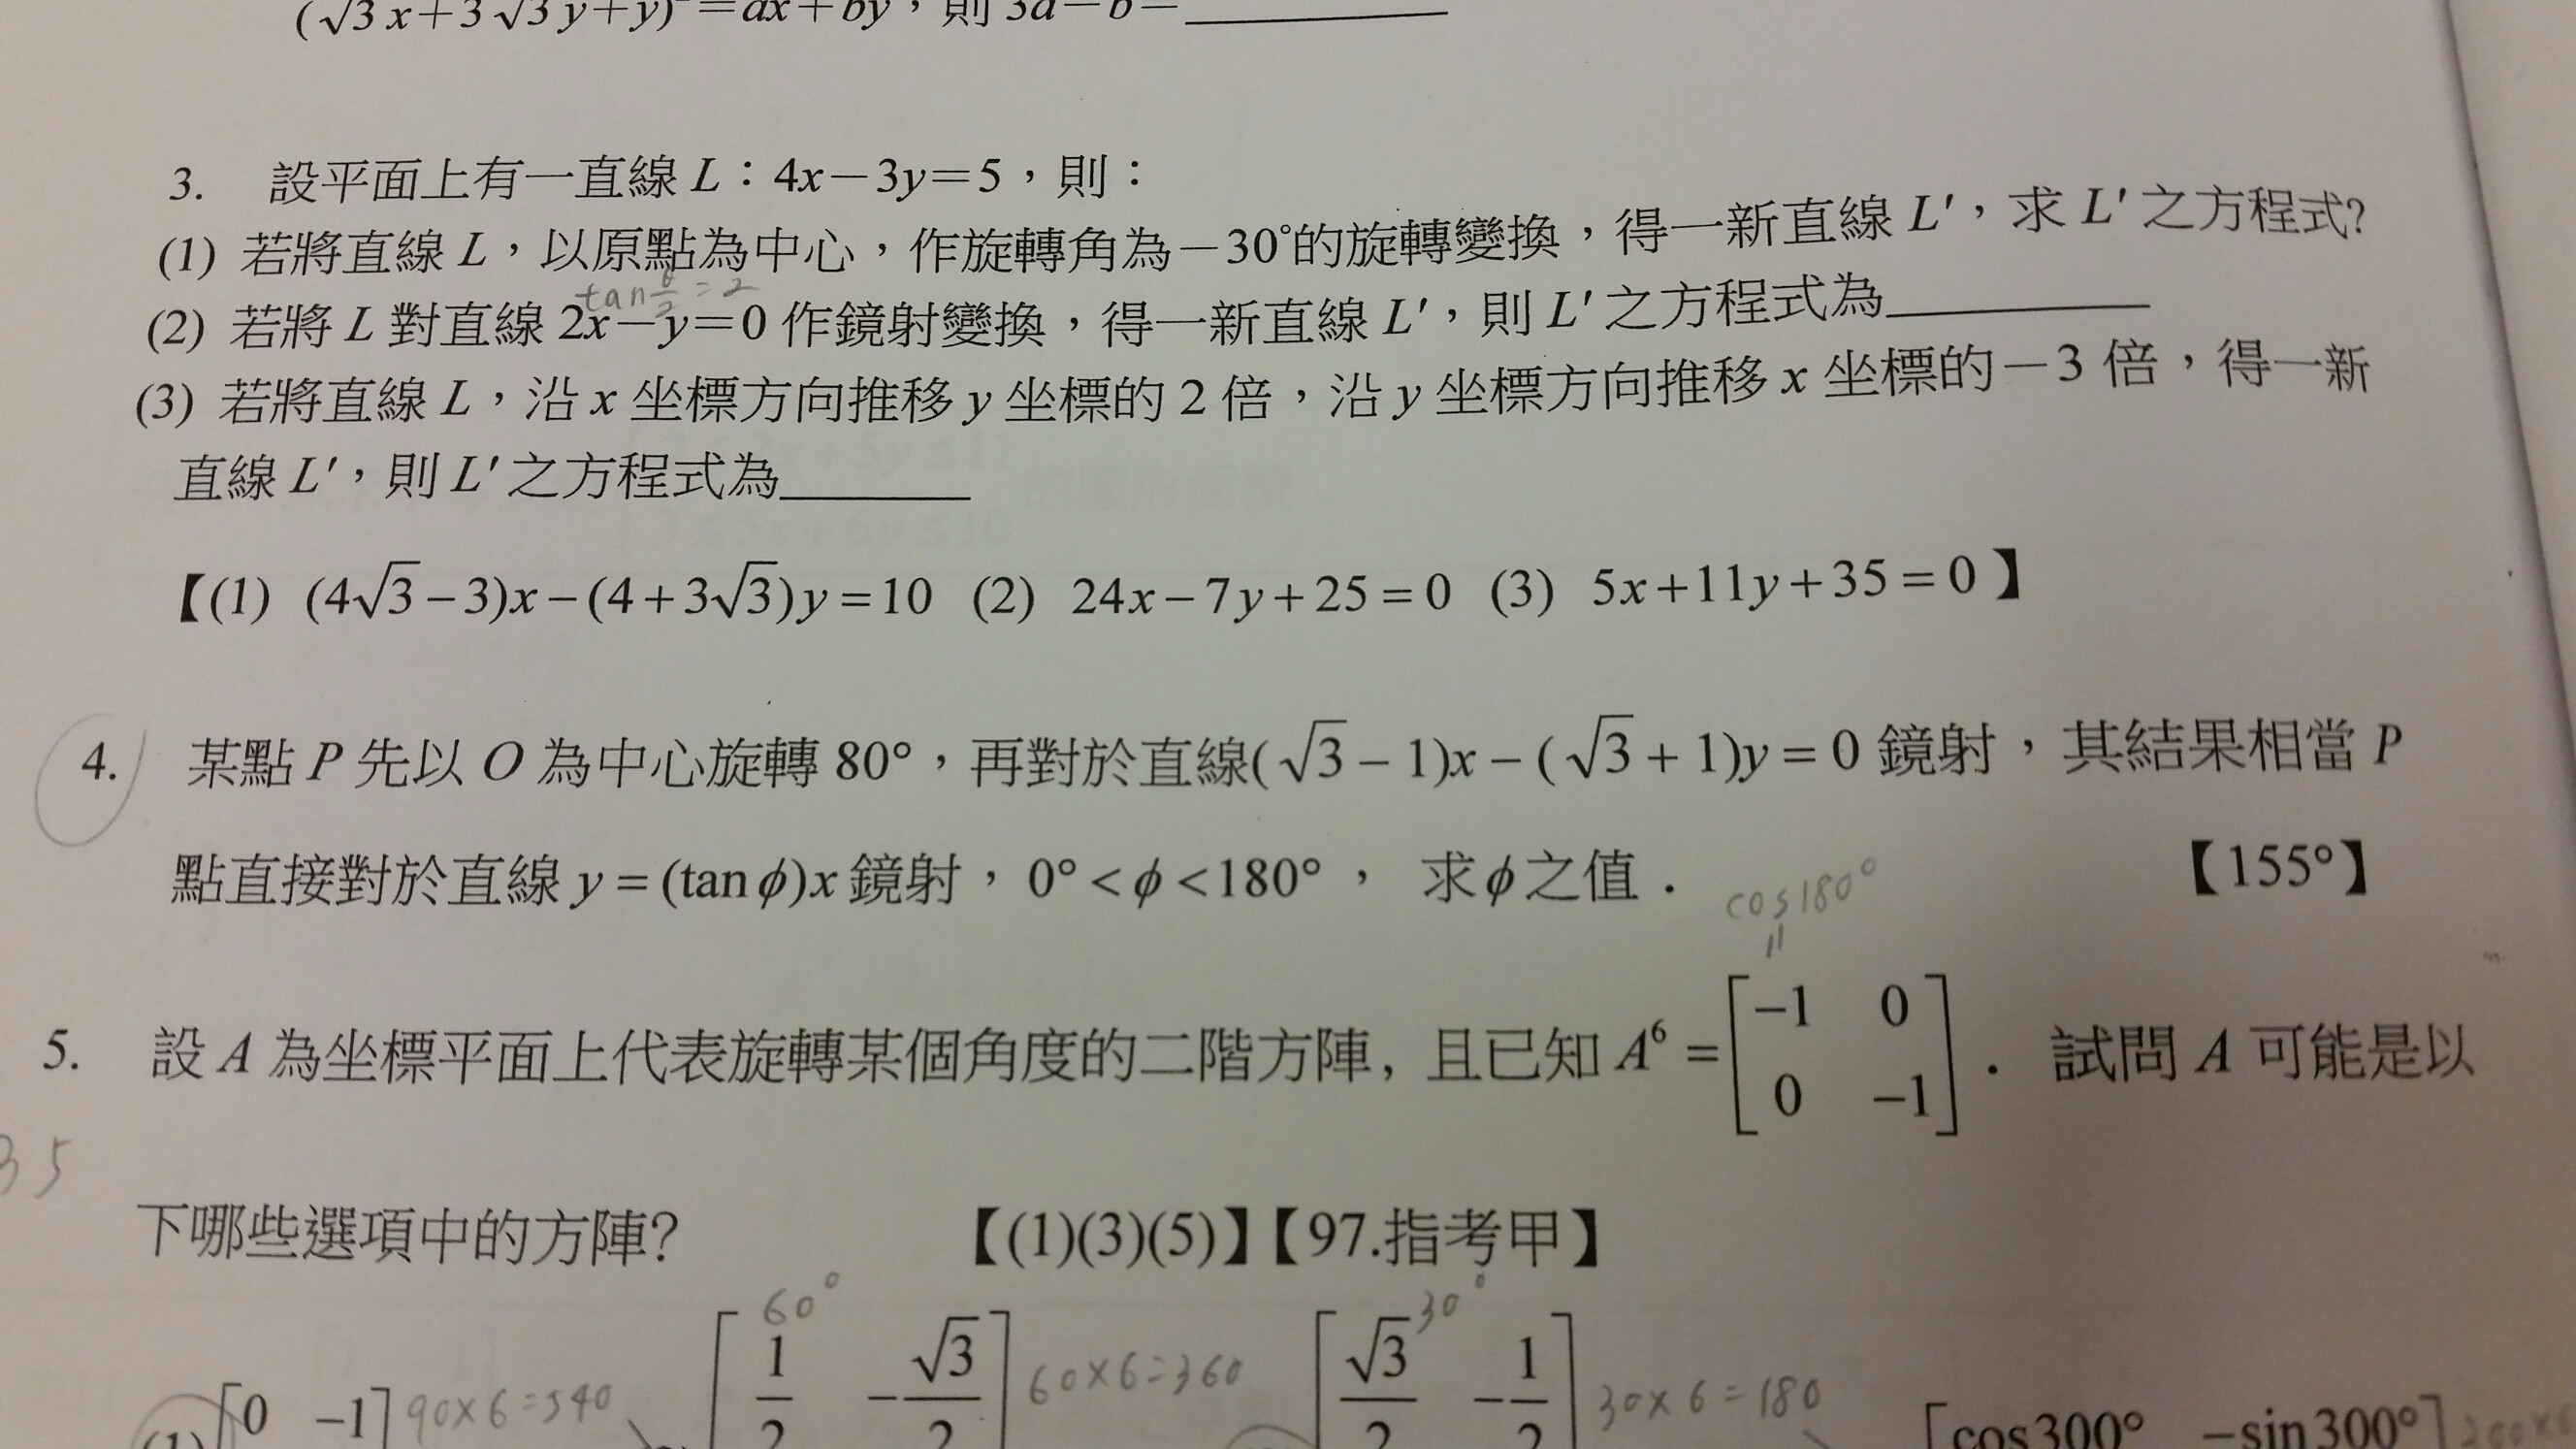 (√3x+3√3y+y)²=ax+by，則 3a−b=______
3. 設平面上有一直線 L：4x−3y=5，則：
(1) 若將直線 L，以原點為中心，作旋轉角為−30°的旋轉變換，得一新直線 L′，求 L′之方程式?
tan θ/2 = 2
(2) 若將 L 對直線 2x−y=0 作鏡射變換，得一新直線 L′，則 L′之方程式為______
(3) 若將直線 L，沿 x 坐標方向推移 y 坐標的 2 倍，沿 y 坐標方向推移 x 坐標的−3 倍，得一新
直線 L′，則 L′之方程式為______
【(1) (4√3−3)x−(4+3√3)y=10 (2) 24x−7y+25=0 (3) 5x+11y+35=0】
4. 某點 P 先以 O 為中心旋轉 80°，再對於直線(√3−1)x−(√3+1)y=0 鏡射，其結果相當 P
點直接對於直線 y=(tanϕ)x 鏡射，0°<ϕ<180°， 求ϕ之值． 【155°】
cos180°
=
5. 設 A 為坐標平面上代表旋轉某個角度的二階方陣, 且已知 A⁶ = [−1 0; 0 −1]． 試問 A 可能是以
35
下哪些選項中的方陣? 【(1)(3)(5)】【97.指考甲】
60° 30°
(1) [0 −1] 90×6=540 [1/2 −√3/2] 60×6=360 [√3/2 −1/2] 30×6=180 [cos300° −sin300°]